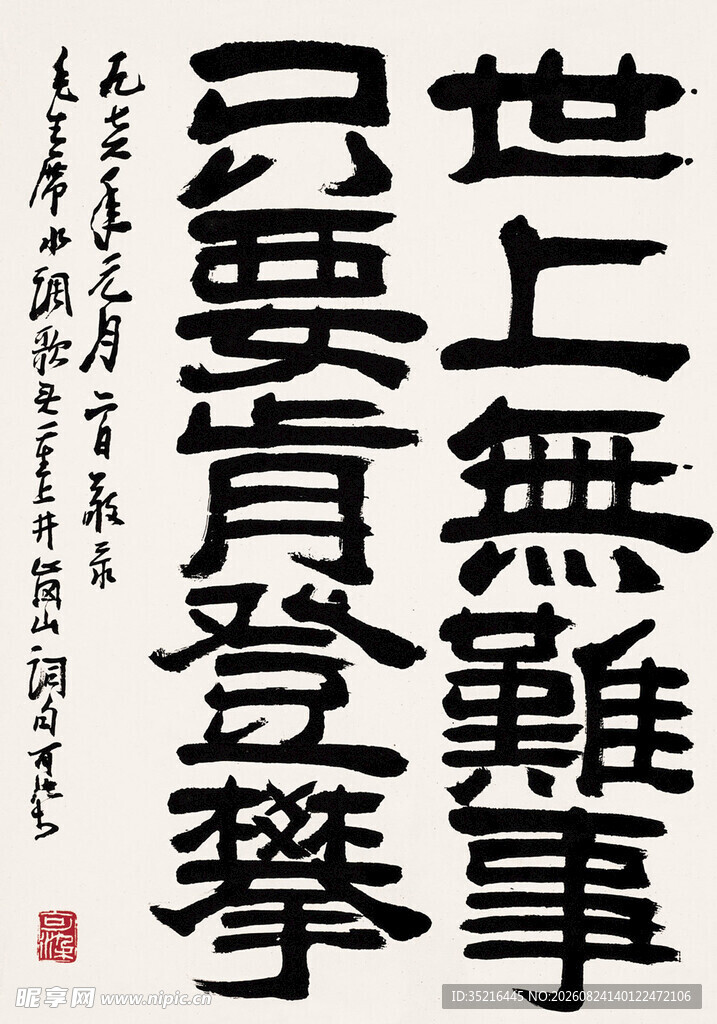 世上無難事
只要肯登攀
一九七六年元月一日敬录
毛主席水調歌头重上井崗山詞句可染書
可染
昵享网 www.nipic.cn
ID:35216445 NO:20260824140122472106